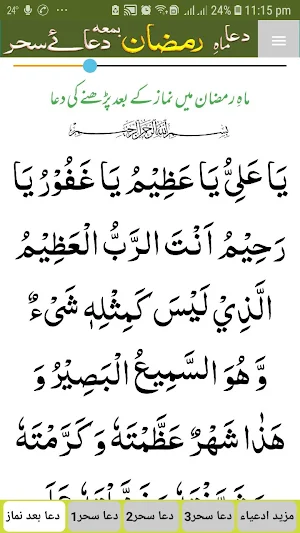 24° 24% 11:15 pm
دعا ماہِ رمضان بمعہ دعائے سحر
ماہِ رمضان میں نماز کے بعد پڑھنے کی دعا
بِسْمِ اللهِ الرَّحْمٰنِ الرَّحِيْمِ
يَا عَلِيُّ يَا عَظِيْمُ يَا غَفُوْرُ يَا
رَحِيْمُ اَنْتَ الرَّبُّ الْعَظِيْمُ
الَّذِيْ لَيْسَ كَمِثْلِهٖ شَيْءٌ
وَّ هُوَ السَّمِيْعُ الْبَصِيْرُ وَ
هٰذَا شَهْرٌ عَظَّمْتَهٗ وَ كَرَّمْتَهٗ
مزید ادعیاء دعا سحر3 دعا سحر2 دعا سحر1 دعا بعد نماز